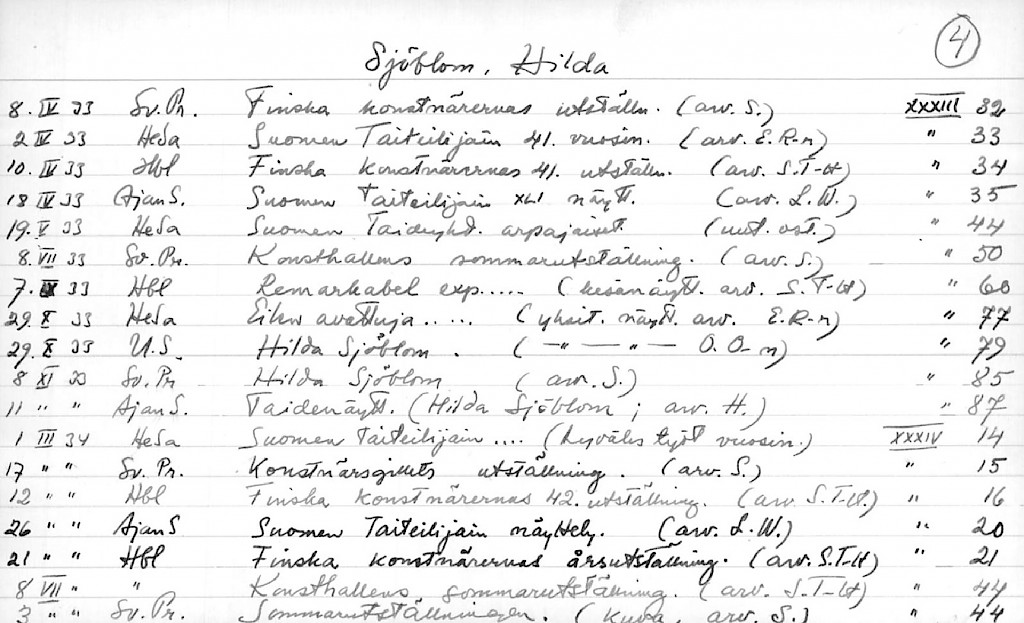 4
Sjöblom, Hilda
8. IV 33 Sv.Pr. Finska konstnärernas utställn. (arv. S.) XXXIII 32
2 IV 33 HeSa Suomen Taiteilijain 41. vuosin. (arv. E.R-n) " 33
10. IV 33 Hbl Finska konstnärernas 41. utställn. (arv. S.T-H) " 34
18 IV 33 AjanS. Suomen Taiteilijain XLI näytt. (arv. L.W.) " 35
19. V 33 HeSa Suomen Taideyhd. arpajaiset. (uut. ost.) " 44
8. VII 33 Sv.Pr. Konsthallens sommarutställning. (arv. S.) " 50
7. 33 Hbl Remarkabel exp..... (kesänäytt. arv. S.T-H) " 60
29. X 33 HeSa Eilen avattuja ..... (yksit. näytt. arv. E.R-n) " 77
29. X 33 U.S. Hilda Sjöblom. ( — " — " — O.O-n) " 79
8 XI 33 Sv.Pr Hilda Sjöblom (arv. S.) " 85
11 " " AjanS. Taidenäytt. (Hilda Sjöblom ; arv. H.) " 87
1 III 34 HeSa Suomen Taiteilijain .... (hyväks. työt vuosin.) XXXIV 14
17 " " Sv.Pr. Konstnärsgillets utställning. (arv. S.) " 15
12 " " Hbl Finska konstnärernas 42. utställning. (arv S.T-H) " 16
26 " " AjanS Suomen Taiteilijain näyttely. (arv. L.W.) " 20
21 " " Hbl Finska konstnärernas årsutställning. (arv. S.T-H) " 21
8 VII " " Konsthallens sommarutställning. (arv. S.T-H) " 44
3 " " Sv.Pr. Sommarutställningen. (kuva, arv. S.) " 44